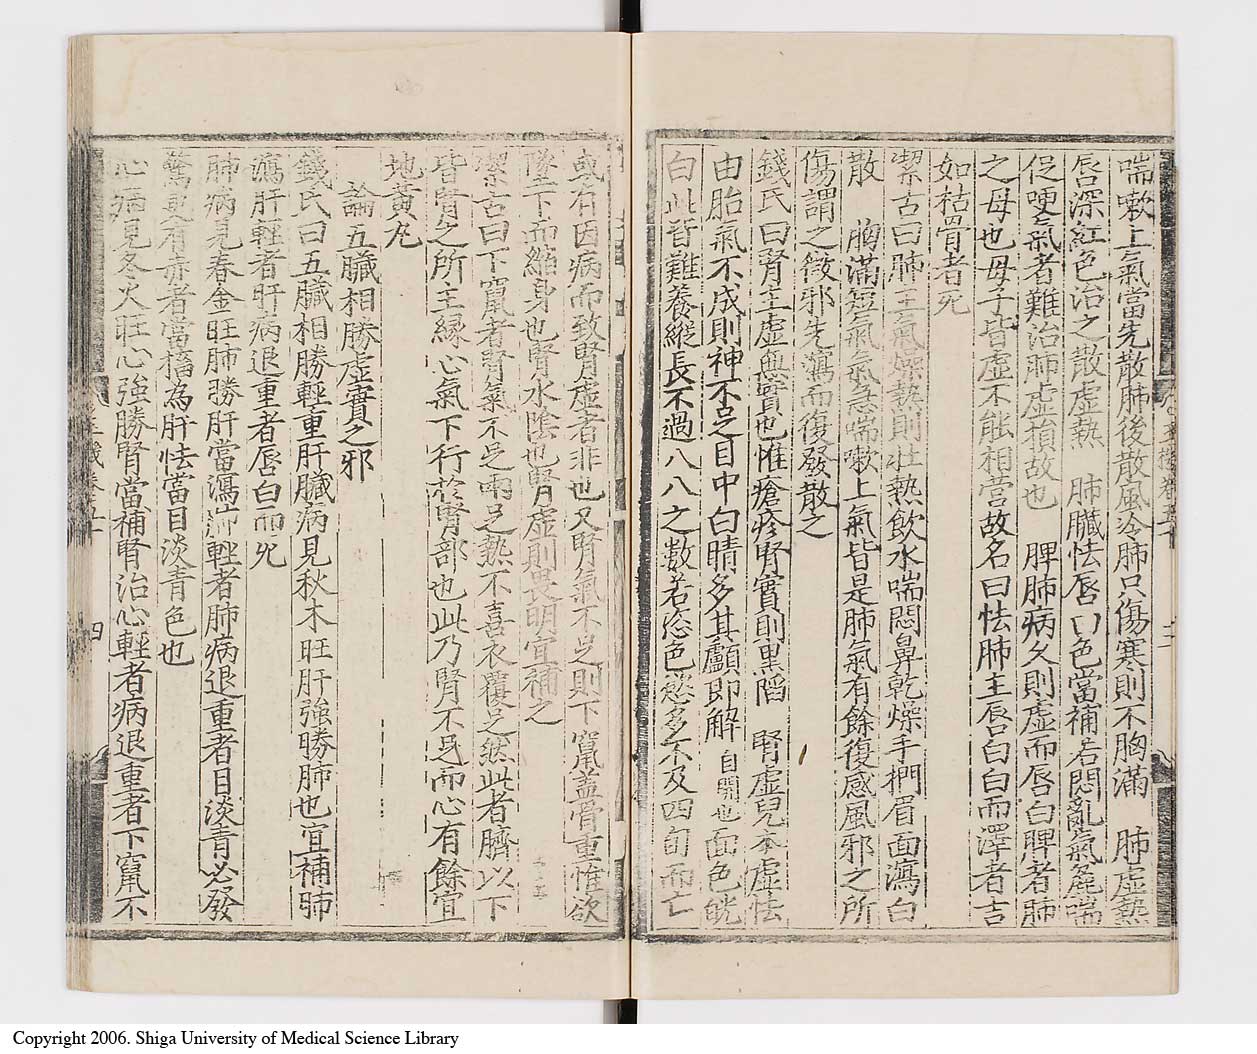 喘嗽上氣當先散肺後散風冷肺只傷寒則不胸滿　肺虛熱
唇深紅色治之散虛熱　肺臟怯唇口色當補若悶亂氣麁喘
促哽氣者難治肺虛損故也　脾肺病久則虛而唇白脾者肺
之母也母子皆虛不能相營故名曰怯肺主唇白白而澤者吉
如枯骨者死
潔古曰肺主氣燥熱則壯熱飲水喘悶鼻乾燥手捫眉面瀉白
散　胸滿短氣氣急喘嗽上氣皆是肺氣有餘復感風邪之所
傷謂之微邪先瀉而復發散之
錢氏曰腎主虛無實也惟瘡疹腎實則黑陷　腎虛兒本虛怯
由胎氣不成則神不足目中白睛多其顱即解自開也面色皝
白此皆難養縱長不過八八之數若恣色慾多不及四旬而亡
或有因病而致腎虛者非也又腎氣不足則下竄盖骨重惟欲
墜下而縮身也腎水陰也腎虛則畏明宜補之
潔古曰下竄者腎氣不足兩足熱不喜衣覆之然此者臍以下
皆腎之所主緣心氣下行於腎部也此乃腎不足而心有餘宜
地黃丸
論五臟相勝虛實之邪
錢氏曰五臟相勝輕重肝臟病見秋木旺肝強勝肺也宜補肺
瀉肝輕者肝病退重者唇白而死
肺病見春金旺肺勝肝當瀉肺輕者肺病退重者目淡青必發
驚更有赤者當搐為肝怯當目淡青色也
心病見冬火旺心強勝腎當補腎治心輕者病退重者下竄不
四
Copyright 2006. Shiga University of Medical Science Library